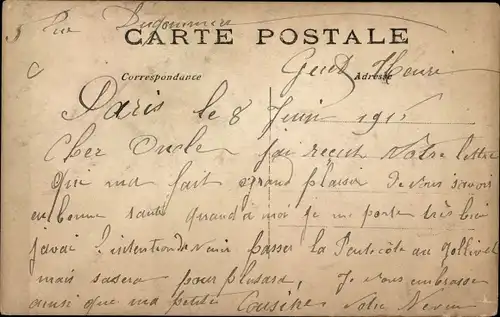 5 Rue Dugommier
CARTE POSTALE
Correspondance Adresse
Henri
Paris le 8 Juin 191
Cher Oncle j'ai recut Votre lettre
qui ma fait grand plaisir de vous savoir
en bonne santé quand a moi je me porte très bien
javai l'intention de venir passer la Pentecôte au
mais sasera pour plus tard, Je vous embrasse
ainsi que ma petite Cousine Votre Neveu